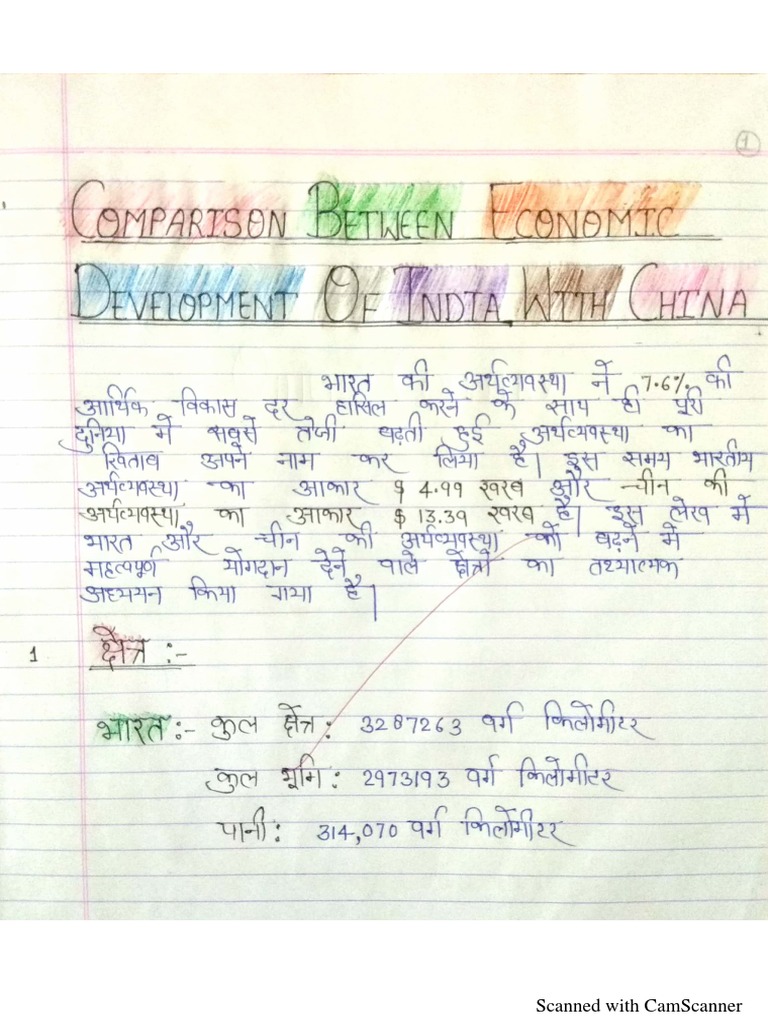 1
COMPARISON BETWEEN ECONOMIC
DEVELOPMENT OF INDIA WITH CHINA
भारत की अर्थव्यवस्था ने 7.6% की
आर्थिक विकास दर हासिल करने के साथ ही पूरी
दुनिया में सबसे तेजी बढ़ती हुई अर्थव्यवस्था का
खिताब अपने नाम कर लिया है। इस समय भारतीय
अर्थव्यवस्था का आकार $ 4.99 खरब और चीन की
अर्थव्यवस्था का आकार $ 13.39 खरब है। इस लेख में
भारत और चीन की अर्थव्यवस्था को बढ़ने में
महत्वपूर्ण योगदान देने वाले क्षेत्रों का तथ्यात्मक
अध्ययन किया गया है।
1 क्षेत्र :-
भारत :- कुल क्षेत्र : 3287263 वर्ग किलोमीटर
कुल भूमि : 2973193 वर्ग किलोमीटर
पानी : 314,070 वर्ग किलोमीटर
Scanned with CamScanner